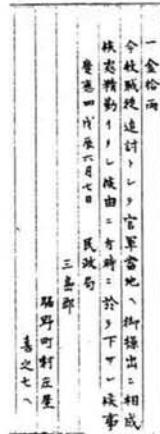 一金拾両
今般賊徒追討トシテ官軍当地ヘ御操出ニ相成
候処精勤イタシ候由ニ有時ニ於テ下サレ候事
慶應四戊辰六月七日　民政局
三島郡
脇野町村庄屋
喜之七ヘ